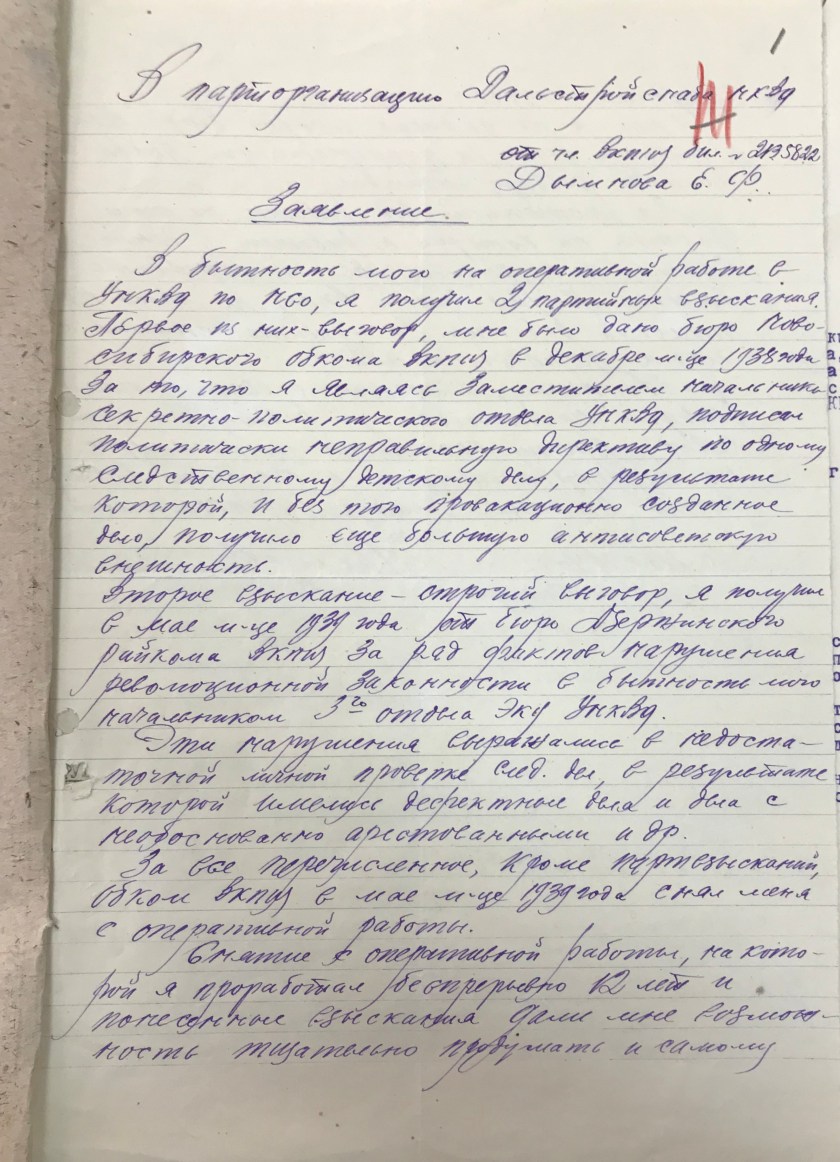 1
В парторганизацию Дальстройснаба НКВД
от чл. ВКП(б) бил. № 2135822
Дымнова Е. Ф.
Заявление.
В бытность мого на оперативной работе в
УНКВД по НСО, я получил 2 партийных взыскания.
Первое из них - выговор, мне было дано бюро Ново-
сибирского обкома ВКП(б) в декабре м-це 1938 года
за то, что я являясь Заместителем начальника
секретно-политического отдела УНКВД, подписал
политически неправильную директиву по одному
следственному детскому делу, в результате
которой, и без того провакационно созданное
дело, получило еще большую антисоветскую
внешность.
Второе взыскание - строгий выговор, я получил
в мае м-це 1939 года от бюро Дзержинского
райкома ВКП(б) за ряд фактов нарушения
революционной законности в бытность мого
начальником 3го отдела ЭКУ УНКВД.
Эти нарушения выражались в недоста-
точной личной проверке след. дел, в результате
которой имелись дефектные дела и дела с
необоснованно арестованными и др.
За все перечисленное, кроме партвзысканий,
обком ВКП(б) в мае м-це 1939 года снял меня
с оперативной работы.
Снятие с оперативной работы, на кото-
рой я проработал беспрерывно 12 лет и
понесенные взыскания дали мне возмож-
ность тщательно продумать и самому